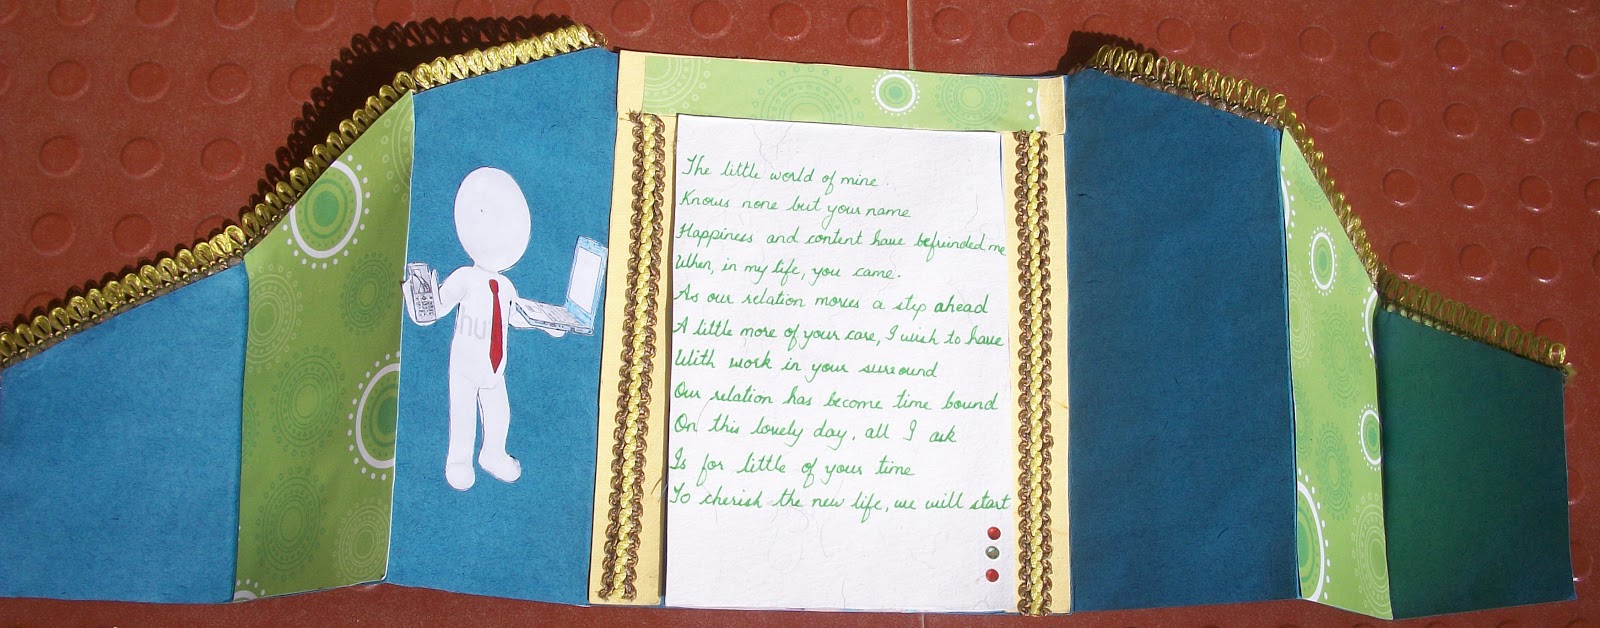 The little world of mine.
Knows none but your name
Happiness and content have befrinded me
When, in my life, you came.
As our relation moves a step ahead
A little more of your care, I wish to have
With work in your suround
Our relation has become time bound
On this lovely day, all I ask
Is for little of your time
To cherish the new life, we will start